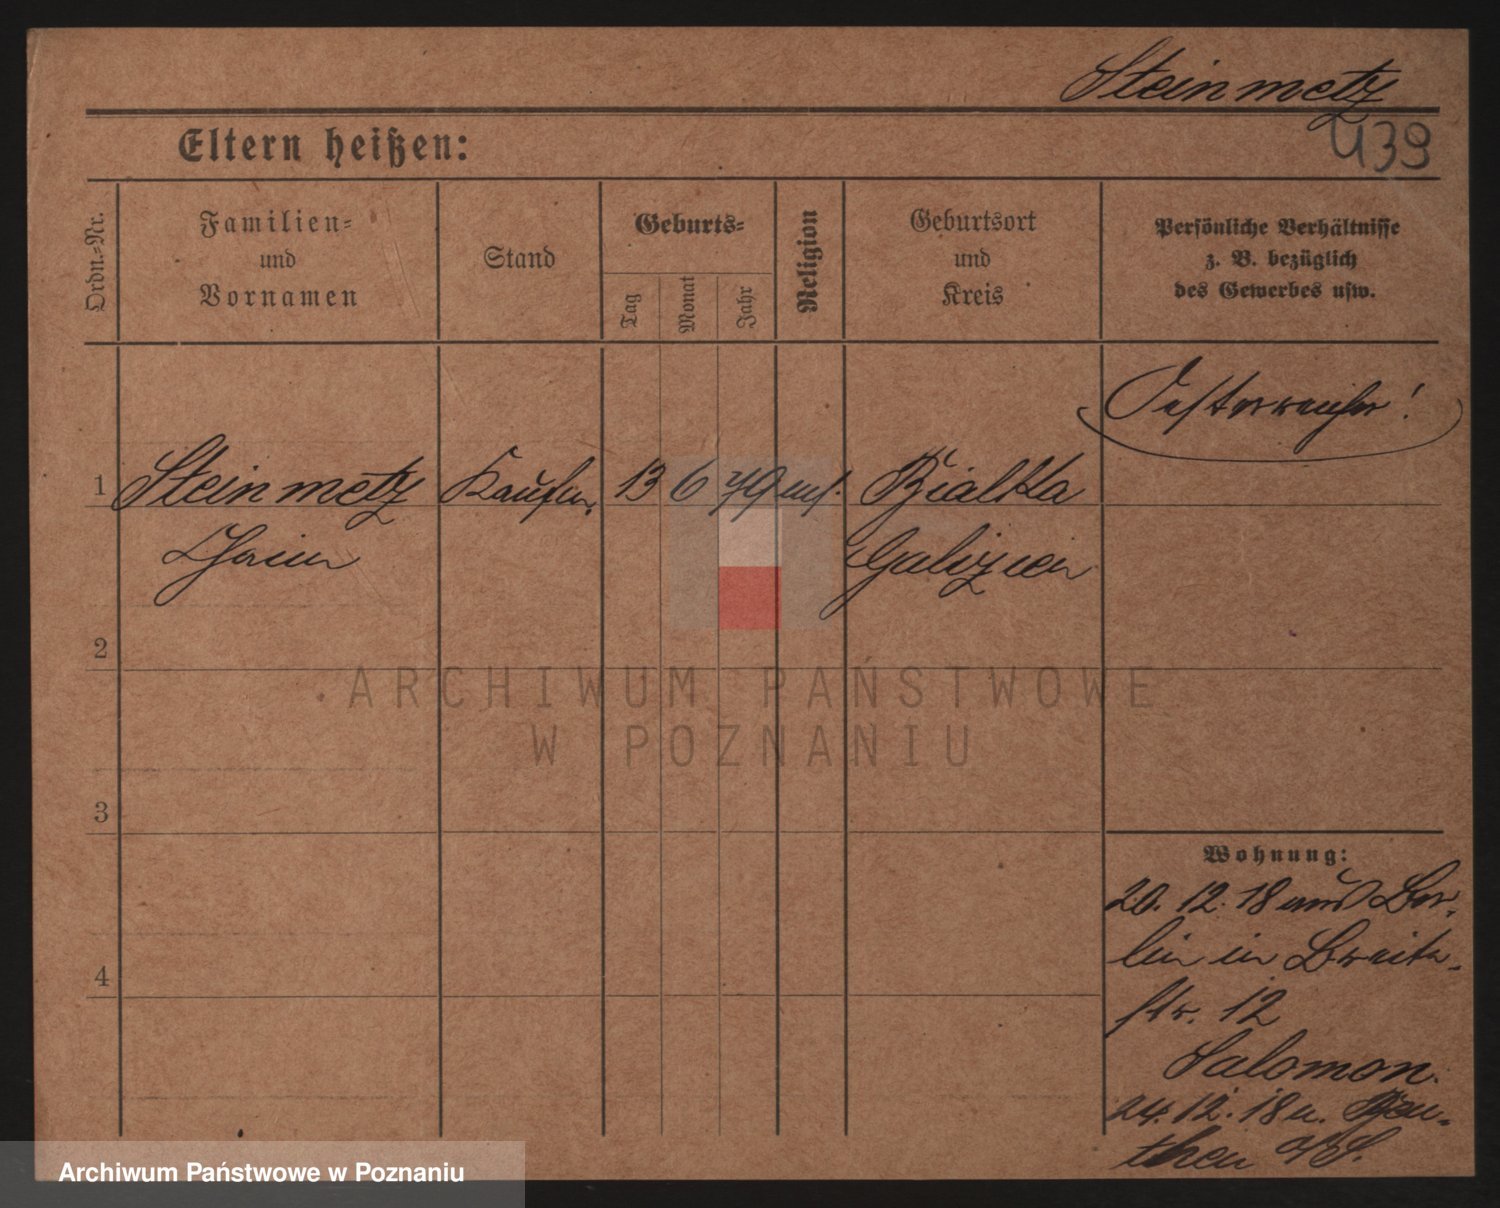 Steinmetz
439
Eltern heißen:
Ordn.-Nr.
Familien-
und
Vornamen
Stand
Geburts-
Tag
Monat
Jahr
Religion
Geburtsort
und
Kreis
Persönliche Verhältnisse
z. B. bezüglich
des Gewerbes usw.
Oesterreicher!
1 Steinmetz Kaufm. 13 6 79 mos. Bialka
Chaim Galizien
2
ARCHIWUM PAŃSTWOWE
W POZNANIU
3
Wohnung:
20. 12. 18 aus Ber-
lin in Breite-
str. 12
4
Salomon.
24. 12. 18 n. Beu-
then O/S.
Archiwum Państwowe w Poznaniu